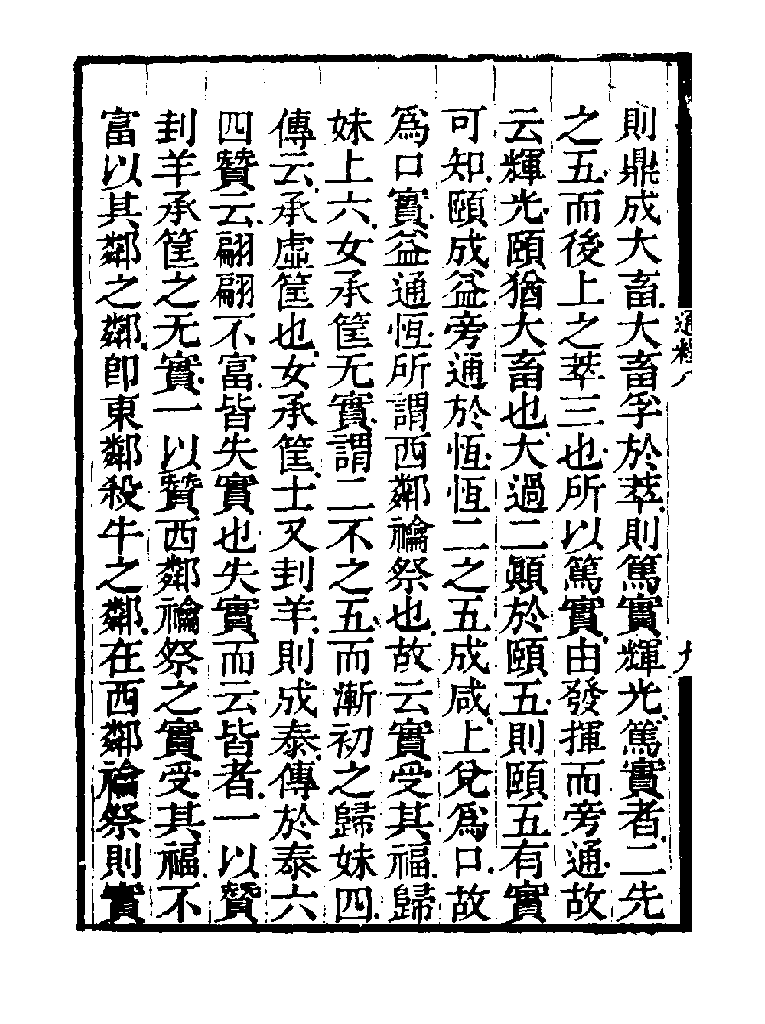 則鼎成大畜大畜孚於萃則篤實輝光篤實者二先
之五而後上之萃三也所以篤實由發揮而旁通故
云輝光頤猶大畜也大過二顚於頤五則頤五有實
可知頤成益旁通於恆恆二之五成咸上兌爲口故
爲口實益通恆所謂西鄰禴祭也故云實受其福歸
妹上六女承筐无實謂二不之五而漸初之歸妹四
傳云承虛筐也女承筐士又刲羊則成泰傳於泰六
四贊云翩翩不富皆失實也失實而云皆者一以贊
刲羊承筐之无實一以贊西鄰禴祭之實受其福不
富以其鄰之鄰卽東鄰殺牛之鄰在西鄰禴祭則實